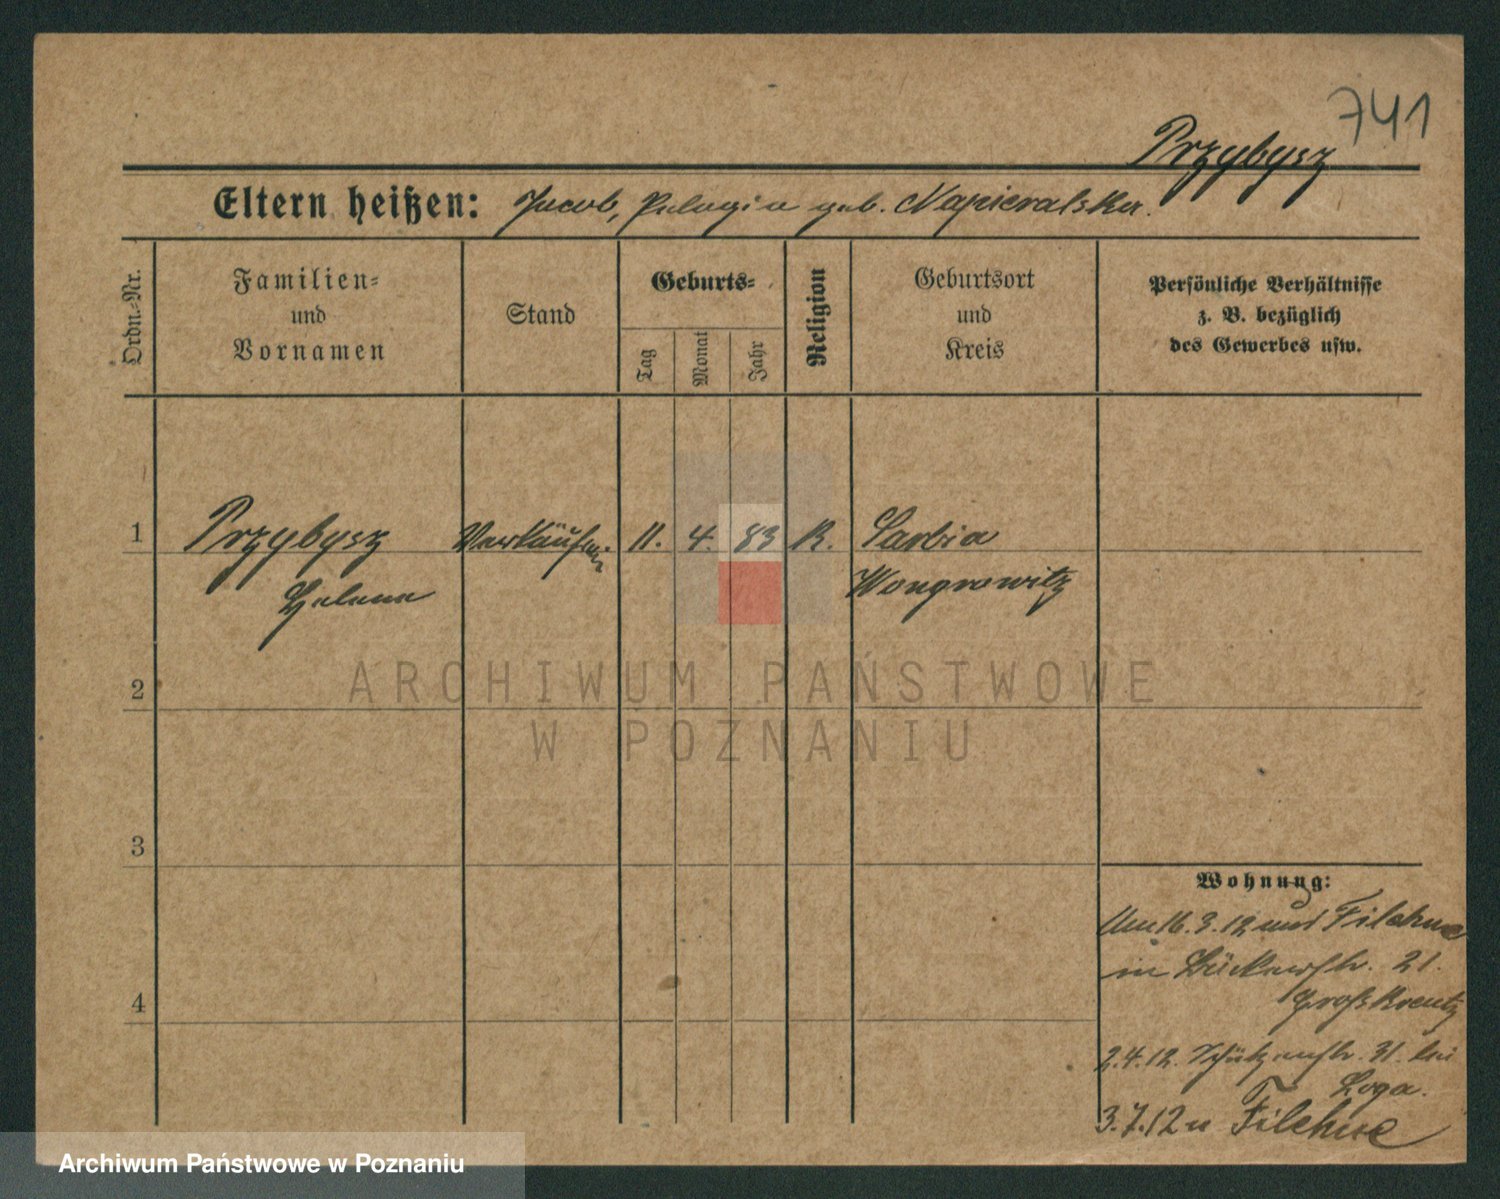 741
Przybysz
Eltern heißen: Jacob, Pelagia geb. Napieralska.
Ordn.-Nr.
Familien-
und
Vornamen
Stand
Geburts-
Tag
Monat
Jahr
Religion
Geburtsort
und
Kreis
Persönliche Verhältnisse
z. B. bezüglich
des Gewerbes usw.
1 Przybysz Verkäuferin 11. 4. 83 K. Sarbia
Helene Wongrowitz
2
3
4
Wohnung:
16.3.12 Filehne
in 21.
Groß Kreutz
2.4.12. Schützenstr. 31. bei
Loga.
3.7.12 n Filehne
ARCHIWUM PAŃSTWOWE
W POZNANIU
Archiwum Państwowe w Poznaniu